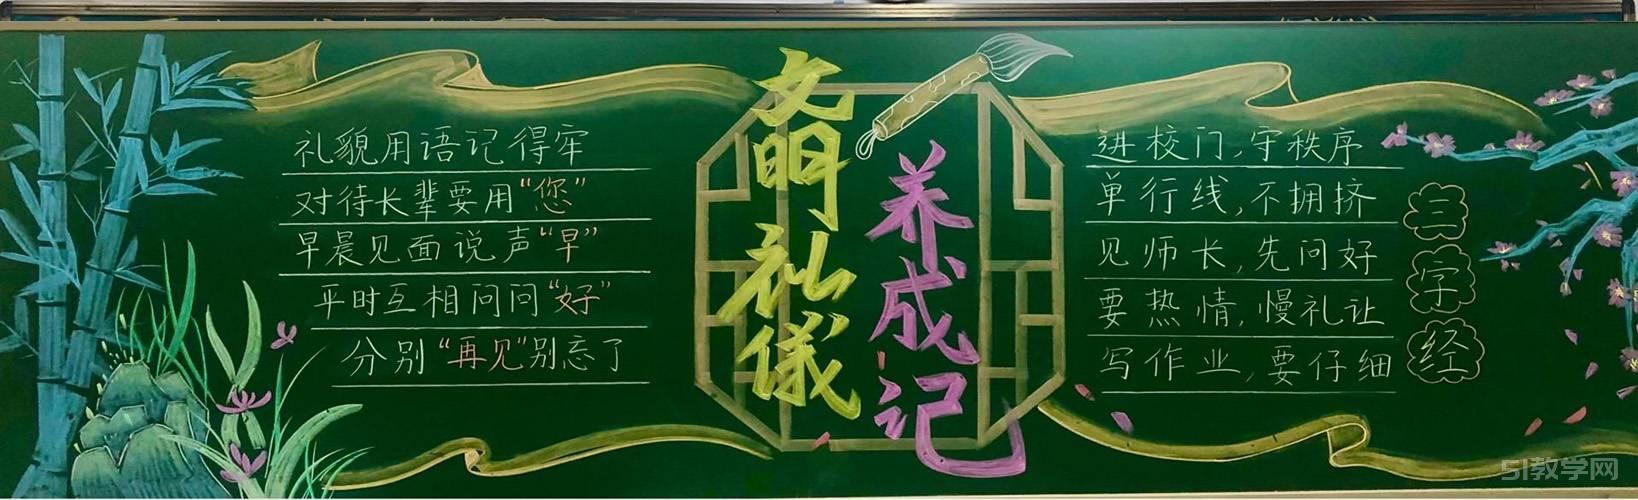 礼貌用语记得牢
对待长辈要用“您”
早晨见面说声“早”
平时互相问问“好”
分别“再见”别忘了
文明礼儀
养成记
进校门,守秩序
单行线,不拥挤
见师长,先问好
要热情,慢礼让
写作业,要仔细
三字经
51教学网